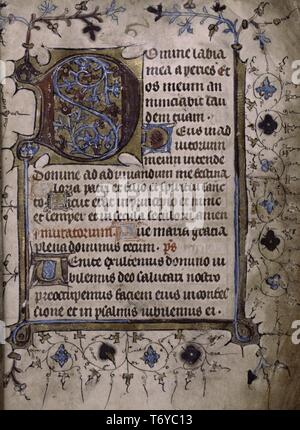 Domine labia
mea aperies Et
os meum an
nunciabit lau
dem tuam.
Deus in ad
iutorium
meum intende
Domine ad adiuvandum me festina
Gloria patri et filio et spiritui sanc
to Sicut erat in principio et nunc
et semper et in secula seculorum amen
Ave maria gracia
plena dominus tecum. ps
Venite exultemus domino iu
bilemus deo salutari nostro
preoccupemus faciem eius in confes
sione et in psalmis iubilemus ei.
alamy - T6YC13